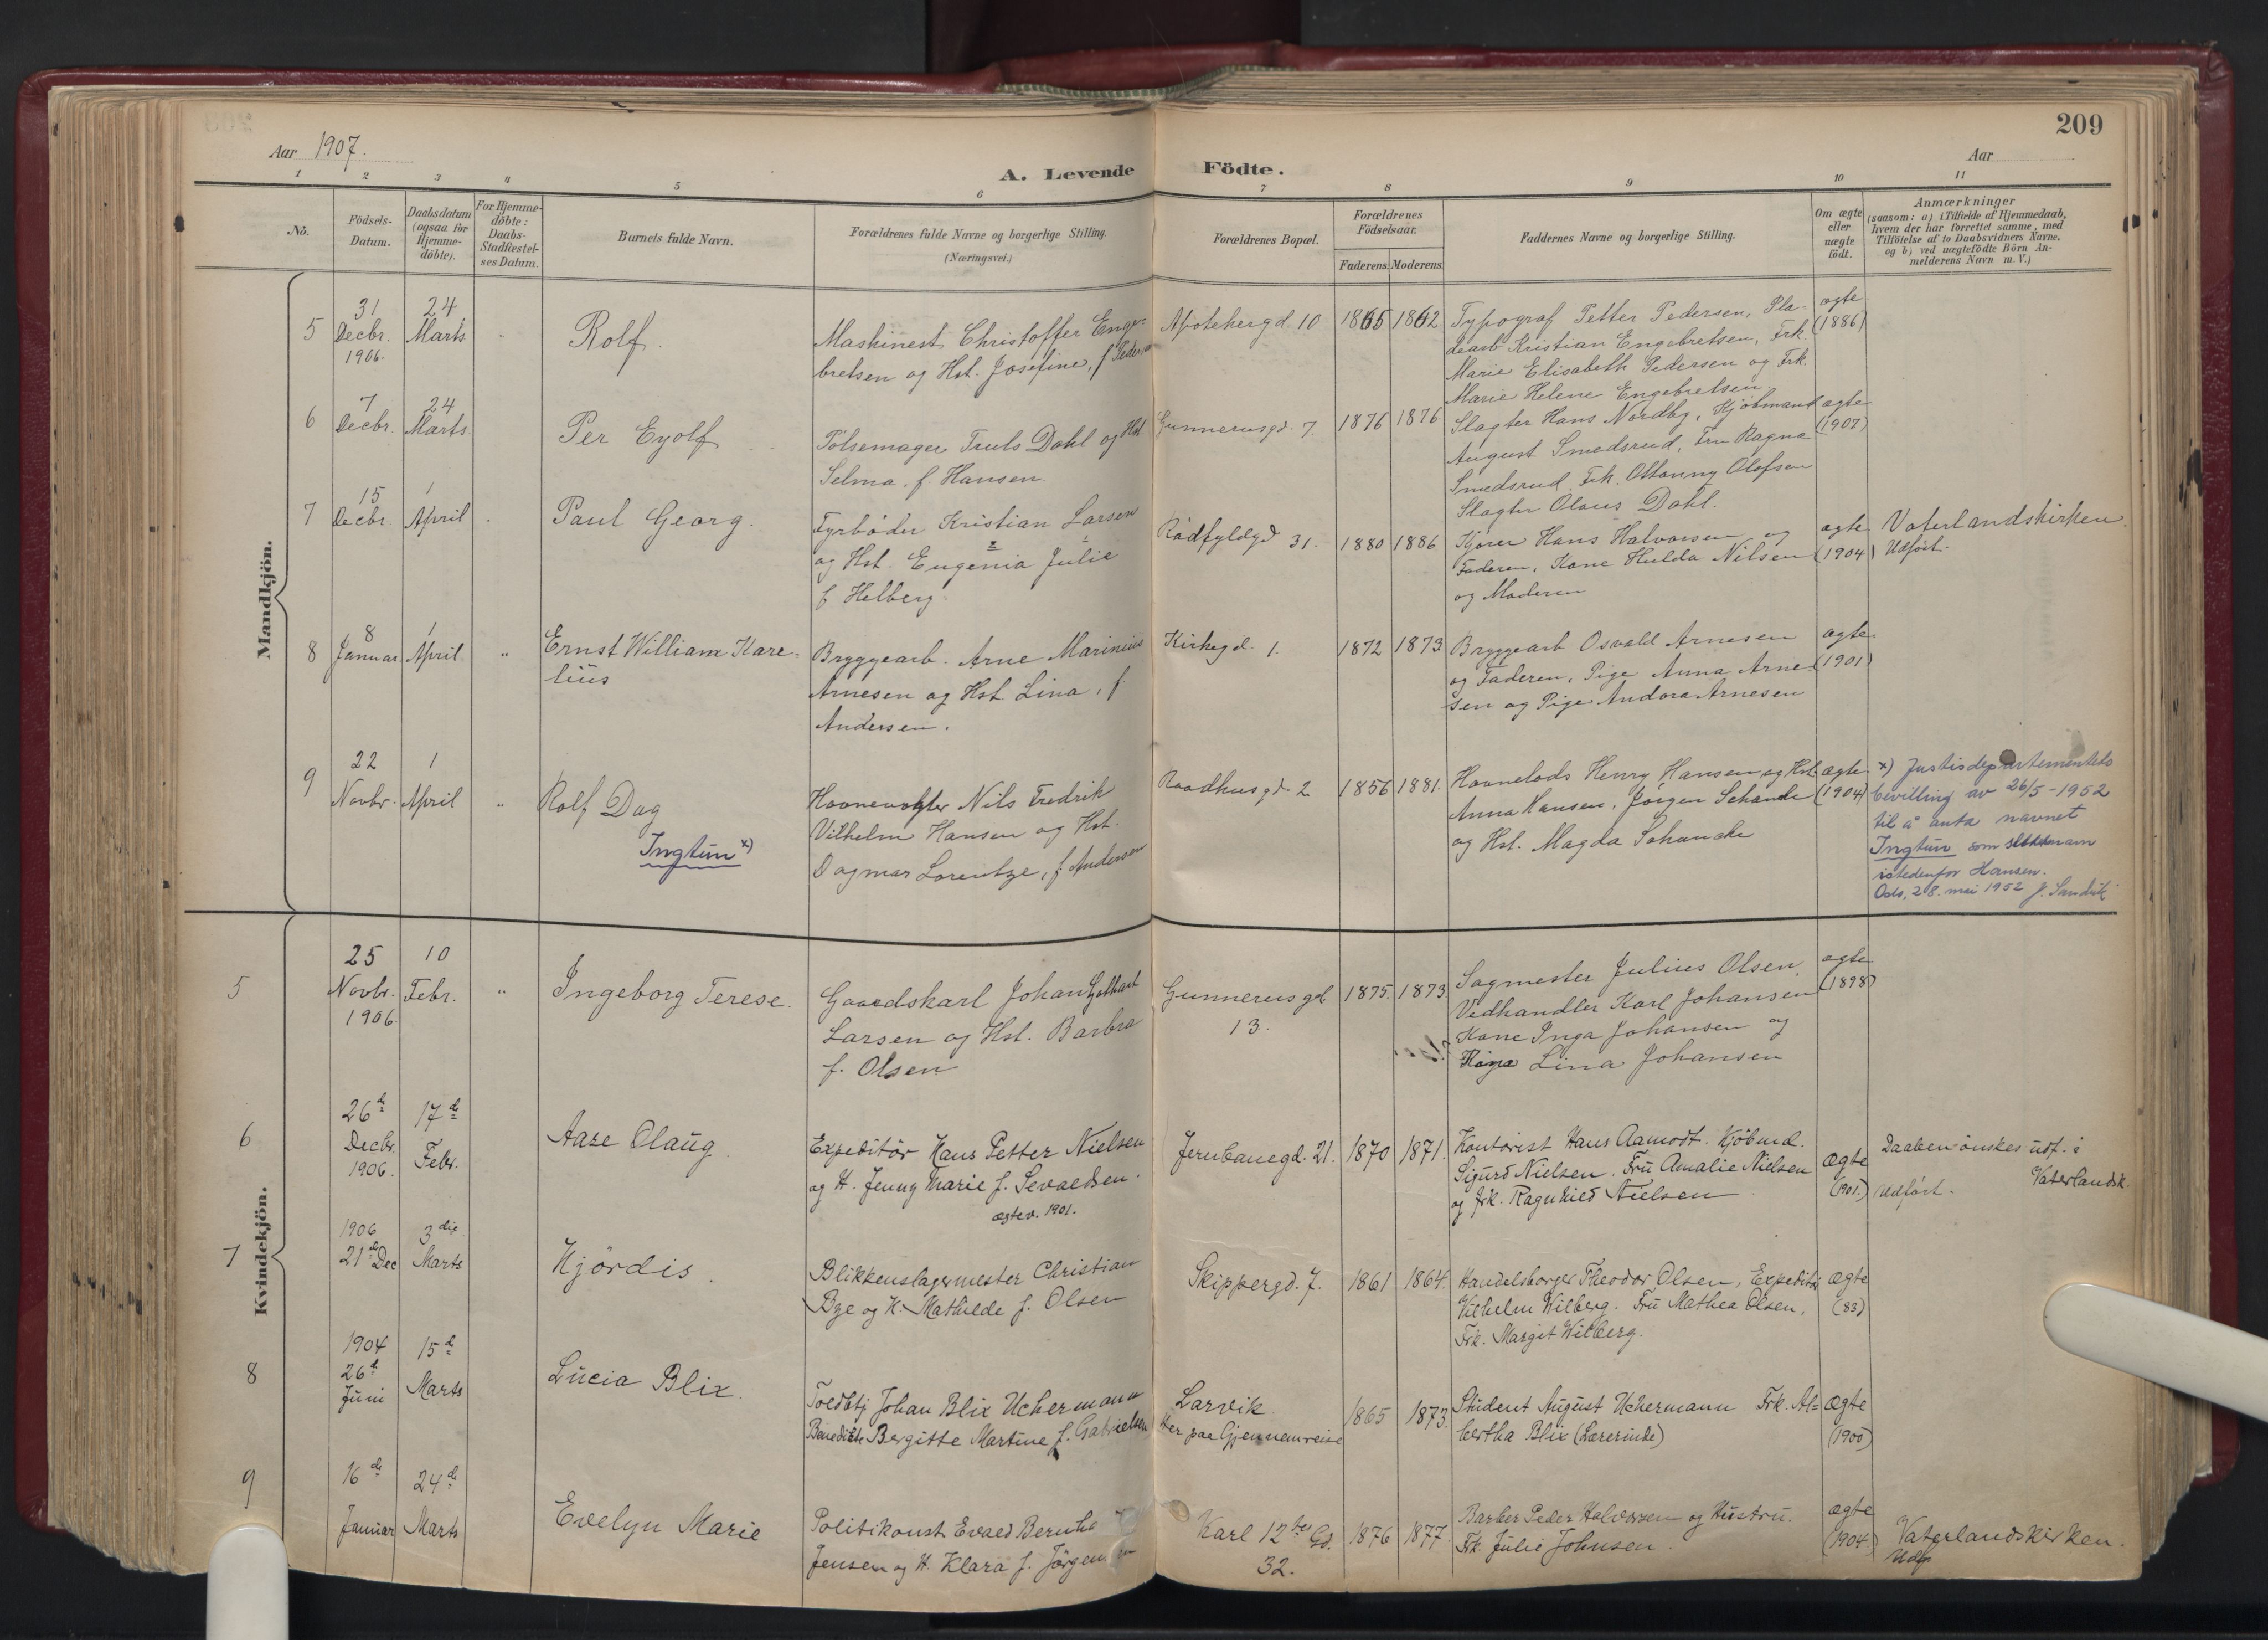 209
Aar 1907.
A. Levende Födte.
Aar
1 2 3 4 5 6 7 8 9 10 11
No.
Födsels-Datum.
Daabsdatum (ogsaa for Hjemme-döbte).
For Hjemme-döbte: Daabs-Stadfæstel-ses Datum.
Barnets fulde Navn.
Forældrenes fulde Navne og borgerlige Stilling.
(Næringsvei.)
Forældrenes Bopæl.
Forældrenes Födselsaar.
Faderens. Moderens.
Faddernes Navne og borgerlige Stilling.
Om ægte eller uægte födt.
Anmærkninger
(saasom: a) i Tilfælde af Hjemmedaab, hvem der har forrettet samme, med Tilföielse af to Daabsvidners Navne, og b) ved uægtefödte Börn An-melderens Navn m. V.)
Mandkjön.
5
31 Decbr. 1906.
24 Marts
Rolf.
Maskinest Christoffer Enge-
bretsen og Hst. Josefine, f Pedersen
Apothekergd. 10
1865 1862
Typograf Petter Pedersen, Pla-
dearb Kristian Engebretsen, Frk.
Marie Elisabeth Pedersen og Frk.
Marie Helene Engebretsen
ægte (1886)
6
7 Decbr.
24 Marts
Per Eyolf
Pölsemager Truls Dahl og Hst
Selma. f. Hansen.
Gunnerusgd. 7.
1876 1876
Slagter Hans Nordby, Kjöbmand
August Smedsrud, Fru Ragna
Smedsrud Frk. Ottonny Olofsen
Slagter Olaus Dahl.
ægte (1907)
7
15 Decbr.
1 April
Paul Georg.
Fyrböder Kristian Larsen
og Hst. Eugenia Julie
f Helberg.
Rödfyldgd 31.
1880 1886
Kjører Hans Halvorsen og
Faderen, Kone Hulda Nilsen
og Moderen
ægte (1904)
Vaterlandskirken.
Udfört.
8
8 Januar.
1 April.
"
Ernst William Kare-
lius
Bryggearb. Arne Marinius
Arnesen og Hst Lina, f
Andersen.
Kirkegd. 1.
1872 1873
Bryggearb Osvald Arnesen
og Faderen, Pige Anna Arne
sen og Pige Andora Arnesen
ægte (1901)
9
22 Novbr.
1 April
"
Rolf Dag
Ingtun x)
Havnevogter Nils Fredrik
Vilhelm Hansen og Hst.
Dagmar Lorentze, f. Andersen
Raadhusgd. 2
1856 1881.
Havnelods Henry Hansen og Hst.
Anna Hansen, Jörgen Schanche
og Hst. Magda Schanche
ægte (1904)
x) Justisdepartementets
bevilling av 26/5-1952
til å anta navnet
Ingtun som slektsnavn
istedenfor Hansen.
Oslo, 28. mai 1952 J. Sandvik
Kvindekjön.
5
25 Novbr. 1906.
10 Febr.
"
Ingeborg Terese.
Gaardskarl Johan Gothart
Larsen og Hst. Barbra
f. Olsen
Gunnerusgd 13.
1875. 1873
Sagmester Julius Olsen.
Vedhandler Karl Johansen
Kone Inga Johansen og
Lina Johansen
ægte (1898)
6
26de Decbr. 1906.
17de Febr.
Aase Olaug
Expeditör Hans Petter Nielsen
og H. Jenny Marie f. Sevaldsen.
ægtev. 1901.
Jernbanegd. 21.
1870 1871.
Kontorist Hans Aamodt. Kjöbmd.
Sigurd Nielsen. Fru Amalie Nielsen
og Frk. Ragnhild Nielsen
Ægte (1901.)
Daaben önskes udf. i
Vaterlandsk.
Udfört.
7
1906 21de Dec
3die Marts
Hjördis.
Blikkenslagermester Christian
Bye og H. Mathilde f. Olsen
Skippergd. 7.
1861 1864.
Handelsborger Theodor Olsen, Expeditör
Vilhelm Wilberg. Fru Mathea Olsen,
Frk. Margit Wilberg.
Ægte (83)
8
1904 26de Juni
15de Marts
Lucia Blix.
Toldbtj Johan Blix Uchermann
Benedicte Bergitte Martine f. Gabrielsen
Larvik.
Her paa Gjennemreise
1865 1873.
Student August Uchermann Frk. Al=
bertha Blix (Lærerinde)
Ægte (1900)
9
16de Januar
24de Marts
Evelyn Marie
Politikonst Evald Bernh
Jensen og H. Klara f. Jörgensen
Karl 12tes Gd. 32.
1876 1877.
Barber Peder Halvorsen og Hustru.
Frk. Julie Johnsen.
Ægte (1904)
Vaterlandskirken.
Udf